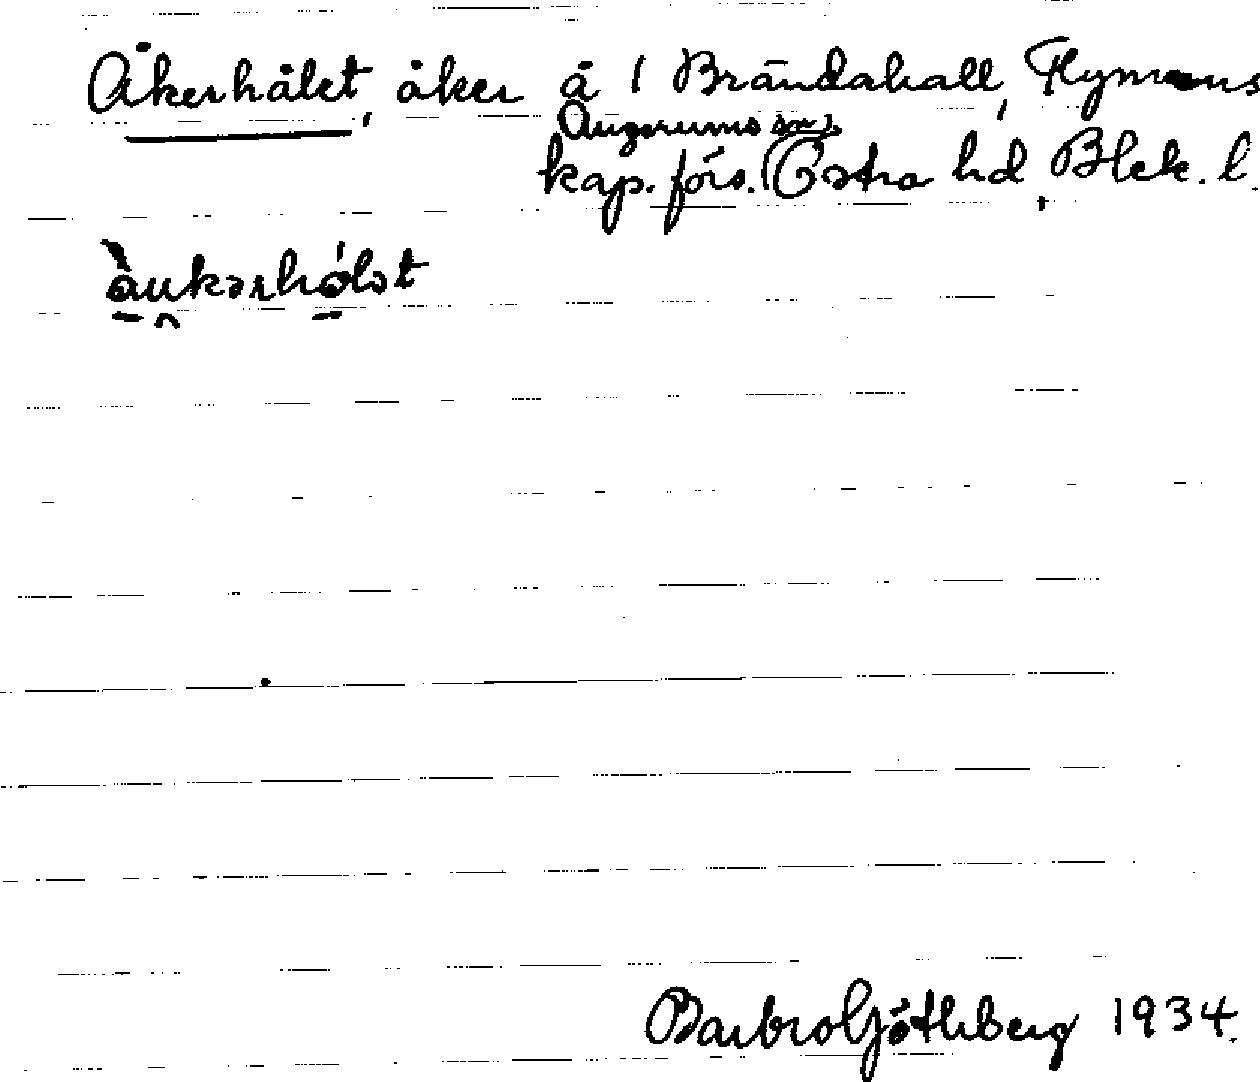 Åkerhålet, åker å 1 Brändahall, Flymens
Augerums sn,
kap. förs. Östra hd, Blek. l.
àukərhólət
Barbro Göthberg 1934.